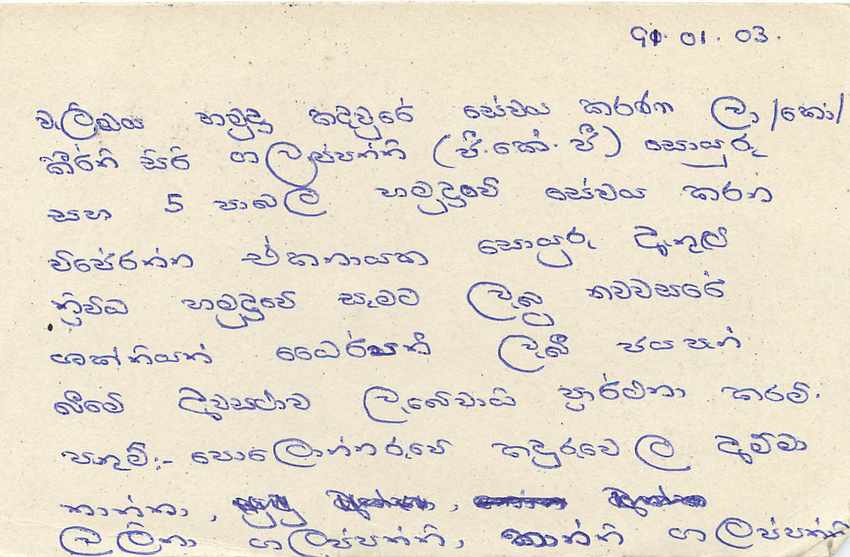 91.01.03.
වැලිඔය හමුදා කඳවුරේ සේවය කරණ ලා/කෝ/
කීර්ති සිරි ගලප්පත්ති (ජී.කේ.ජී) සොයුරු
සහ 5 පාබල හමුදාවේ සේවය කරන
විජේරත්න ඒකනායක සොයුරු ඇතුලු
ත්‍රිවිධ හමුදාවේ සැමට ලැබූ නවවසරේ
ශක්තියත් ධෛර්යත් ලැබී ජයපැන්
බීමේ අවස්ථාව ලැබේවායි ප්‍රාර්ථනා කරමි.
පතුම්:- පොලොන්නරුවේ කදුරුවෙල අම්මා
තාත්තා,
ලලිතා ගලප්පත්ති, කාන්ති ගලප්පත්ති